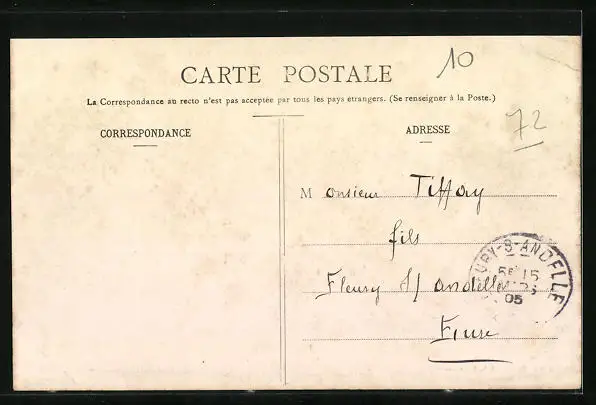 10
CARTE POSTALE
La Correspondance au recto n'est pas acceptée par tous les pays étrangers. (Se renseigner à la Poste.)
72
CORRESPONDANCE
ADRESSE
Monsieur Tiffay
fils
Fleury s/ andelle
Eure
URY-S-ANDELLE
15
05